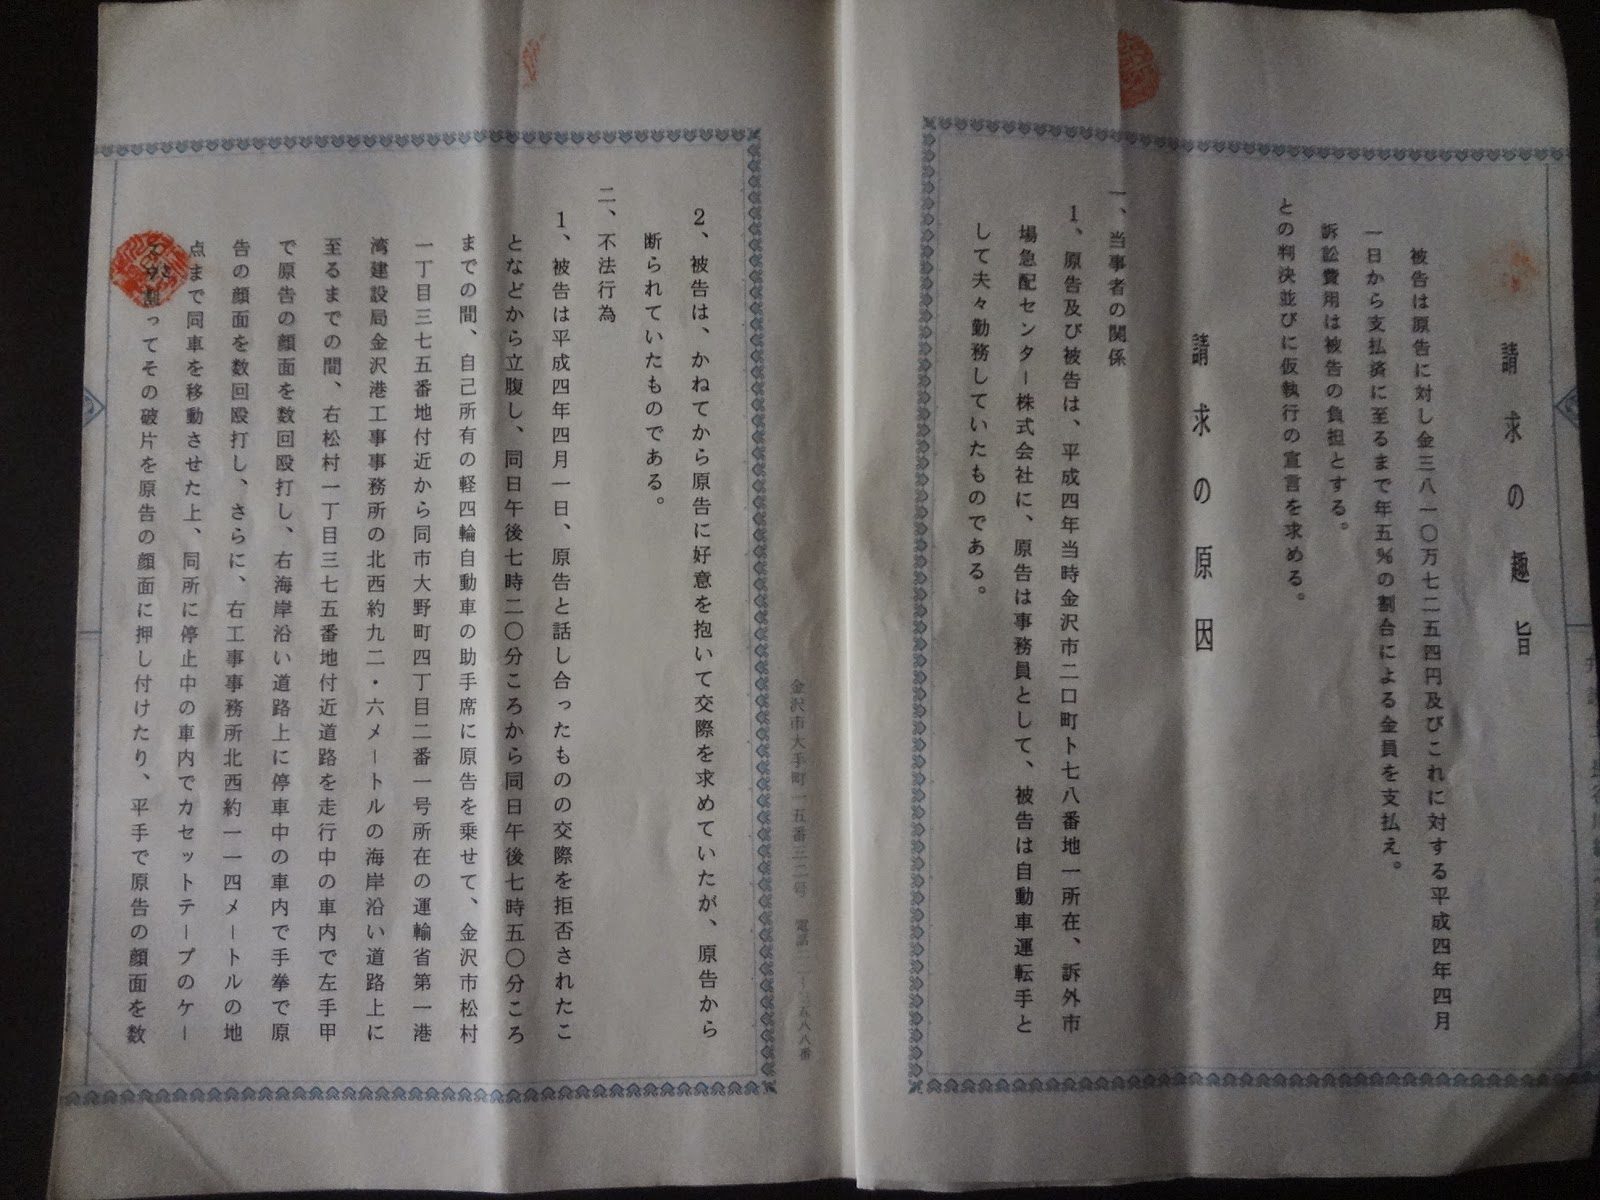 請求の趣旨
被告は原告に対し金三八一〇万七二五四円及びこれに対する平成四年四月
一日から支払済に至るまで年五%の割合による金員を支払え。
訴訟費用は被告の負担とする。
との判決並びに仮執行の宣言を求める。
請求の原因
一、当事者の関係
1、原告及び被告は、平成四年当時金沢市二口町ト七八番地一所在、訴外市
場急配センター株式会社に、原告は事務員として、被告は自動車運転手と
して夫々勤務していたものである。
金沢市大手町一五番三二号 電話
2、被告は、かねてから原告に好意を抱いて交際を求めていたが、原告から
断られていたものである。
二、不法行為
1、被告は平成四年四月一日、原告と話し合ったものの交際を拒否されたこ
となどから立腹し、同日午後七時二〇分ころから同日午後七時五〇分ころ
までの間、自己所有の軽四輪自動車の助手席に原告を乗せて、金沢市松村
一丁目三七五番地付近から同市大野町四丁目二番一号所在の運輸省第一港
湾建設局金沢港工事事務所の北西約九二・六メートルの海岸沿い道路上に
至るまでの間、右松村一丁目三七五番地付近道路を走行中の車内で左手甲
で原告の顔面を数回殴打し、右海岸沿い道路上に停車中の車内で手拳で原
告の顔面を数回殴打し、さらに、右工事事務所北西約一一四メートルの地
点まで同車を移動させた上、同所に停止中の車内でカセットテープのケー
割ってその破片を原告の顔面に押し付けたり、平手で原告の顔面を数